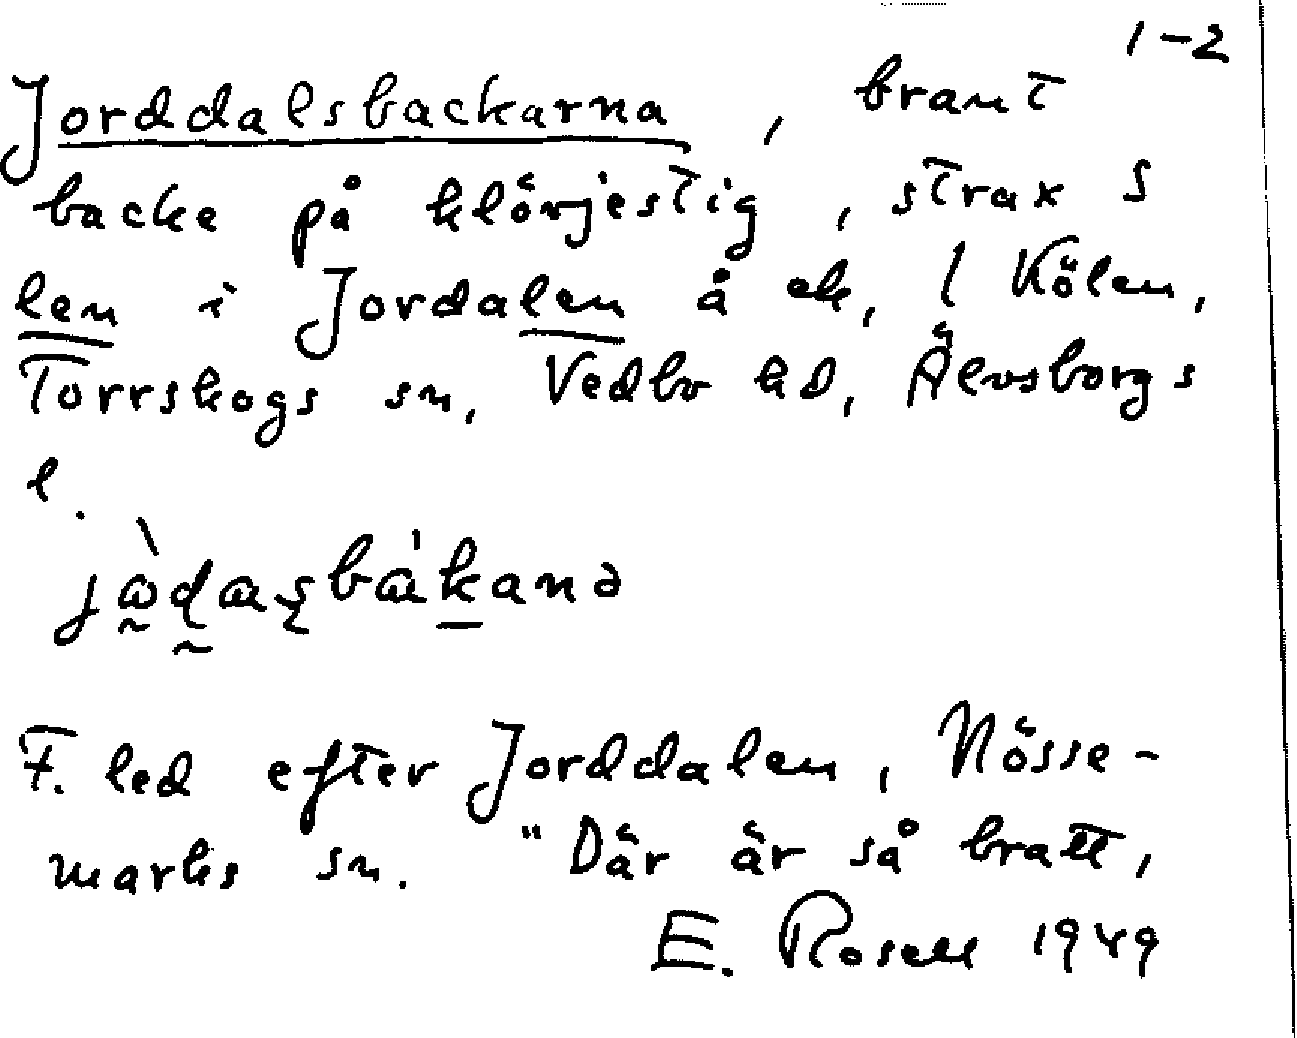 1-2
Jorddalsbackarna, brant
backe på klövjestig, strax S
len i Jordalen å ek, l Kölen,
Torrskogs sn, Vedbo hd, Älvsborgs
l.
F. led efter Jorddalen, Nösse-
marks sn. "Där är så bratt,
E. Rosell 1949